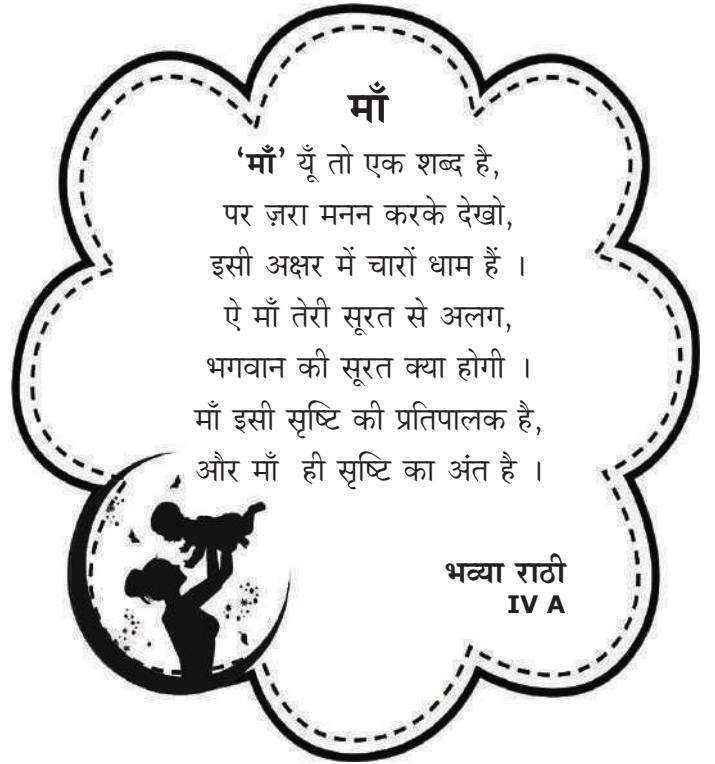 माँ
‘माँ’ यूँ तो एक शब्द है,
पर ज़रा मनन करके देखो,
इसी अक्षर में चारों धाम हैं ।
ऐ माँ तेरी सूरत से अलग,
भगवान की सूरत क्या होगी ।
माँ इसी सृष्टि की प्रतिपालक है,
और माँ ही सृष्टि का अंत है ।
भव्या राठी
IV A